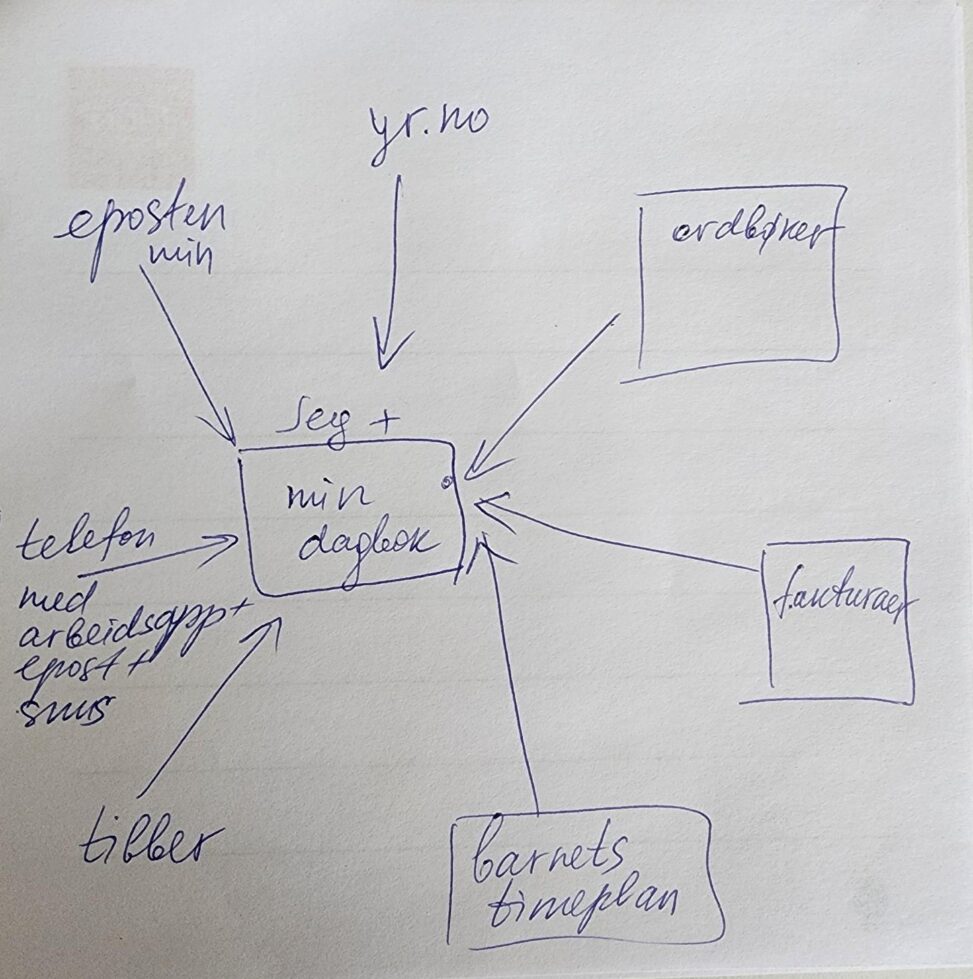 yr.no
eposten
min
ordbøker
Jeg +
min
dagbok
telefon
med
arbeidsapp+
epost +
sms
fakturaer
tibber
barnets
timeplan